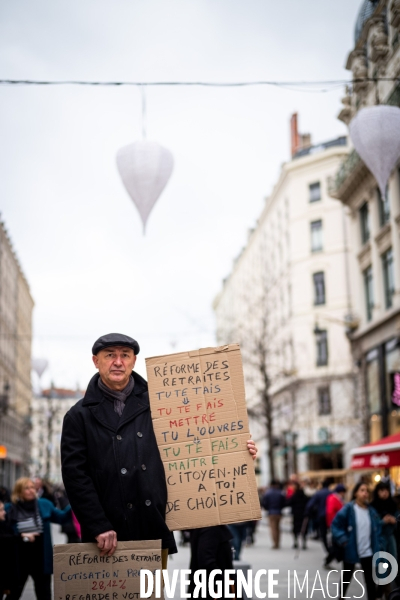 RÉFORME DES
RETRAITES
TU TE TAIS
↓
TU TE FAIS
METTRE
TU L'OUVRES
↓
TU TE FAIS
MAÎTRE
CITOYEN·NE
A TOI
DE CHOISIR
RÉFORME DES RETRAITES
COTISATION
28,12%
REGARDER
DIVERGENCE IMAGES